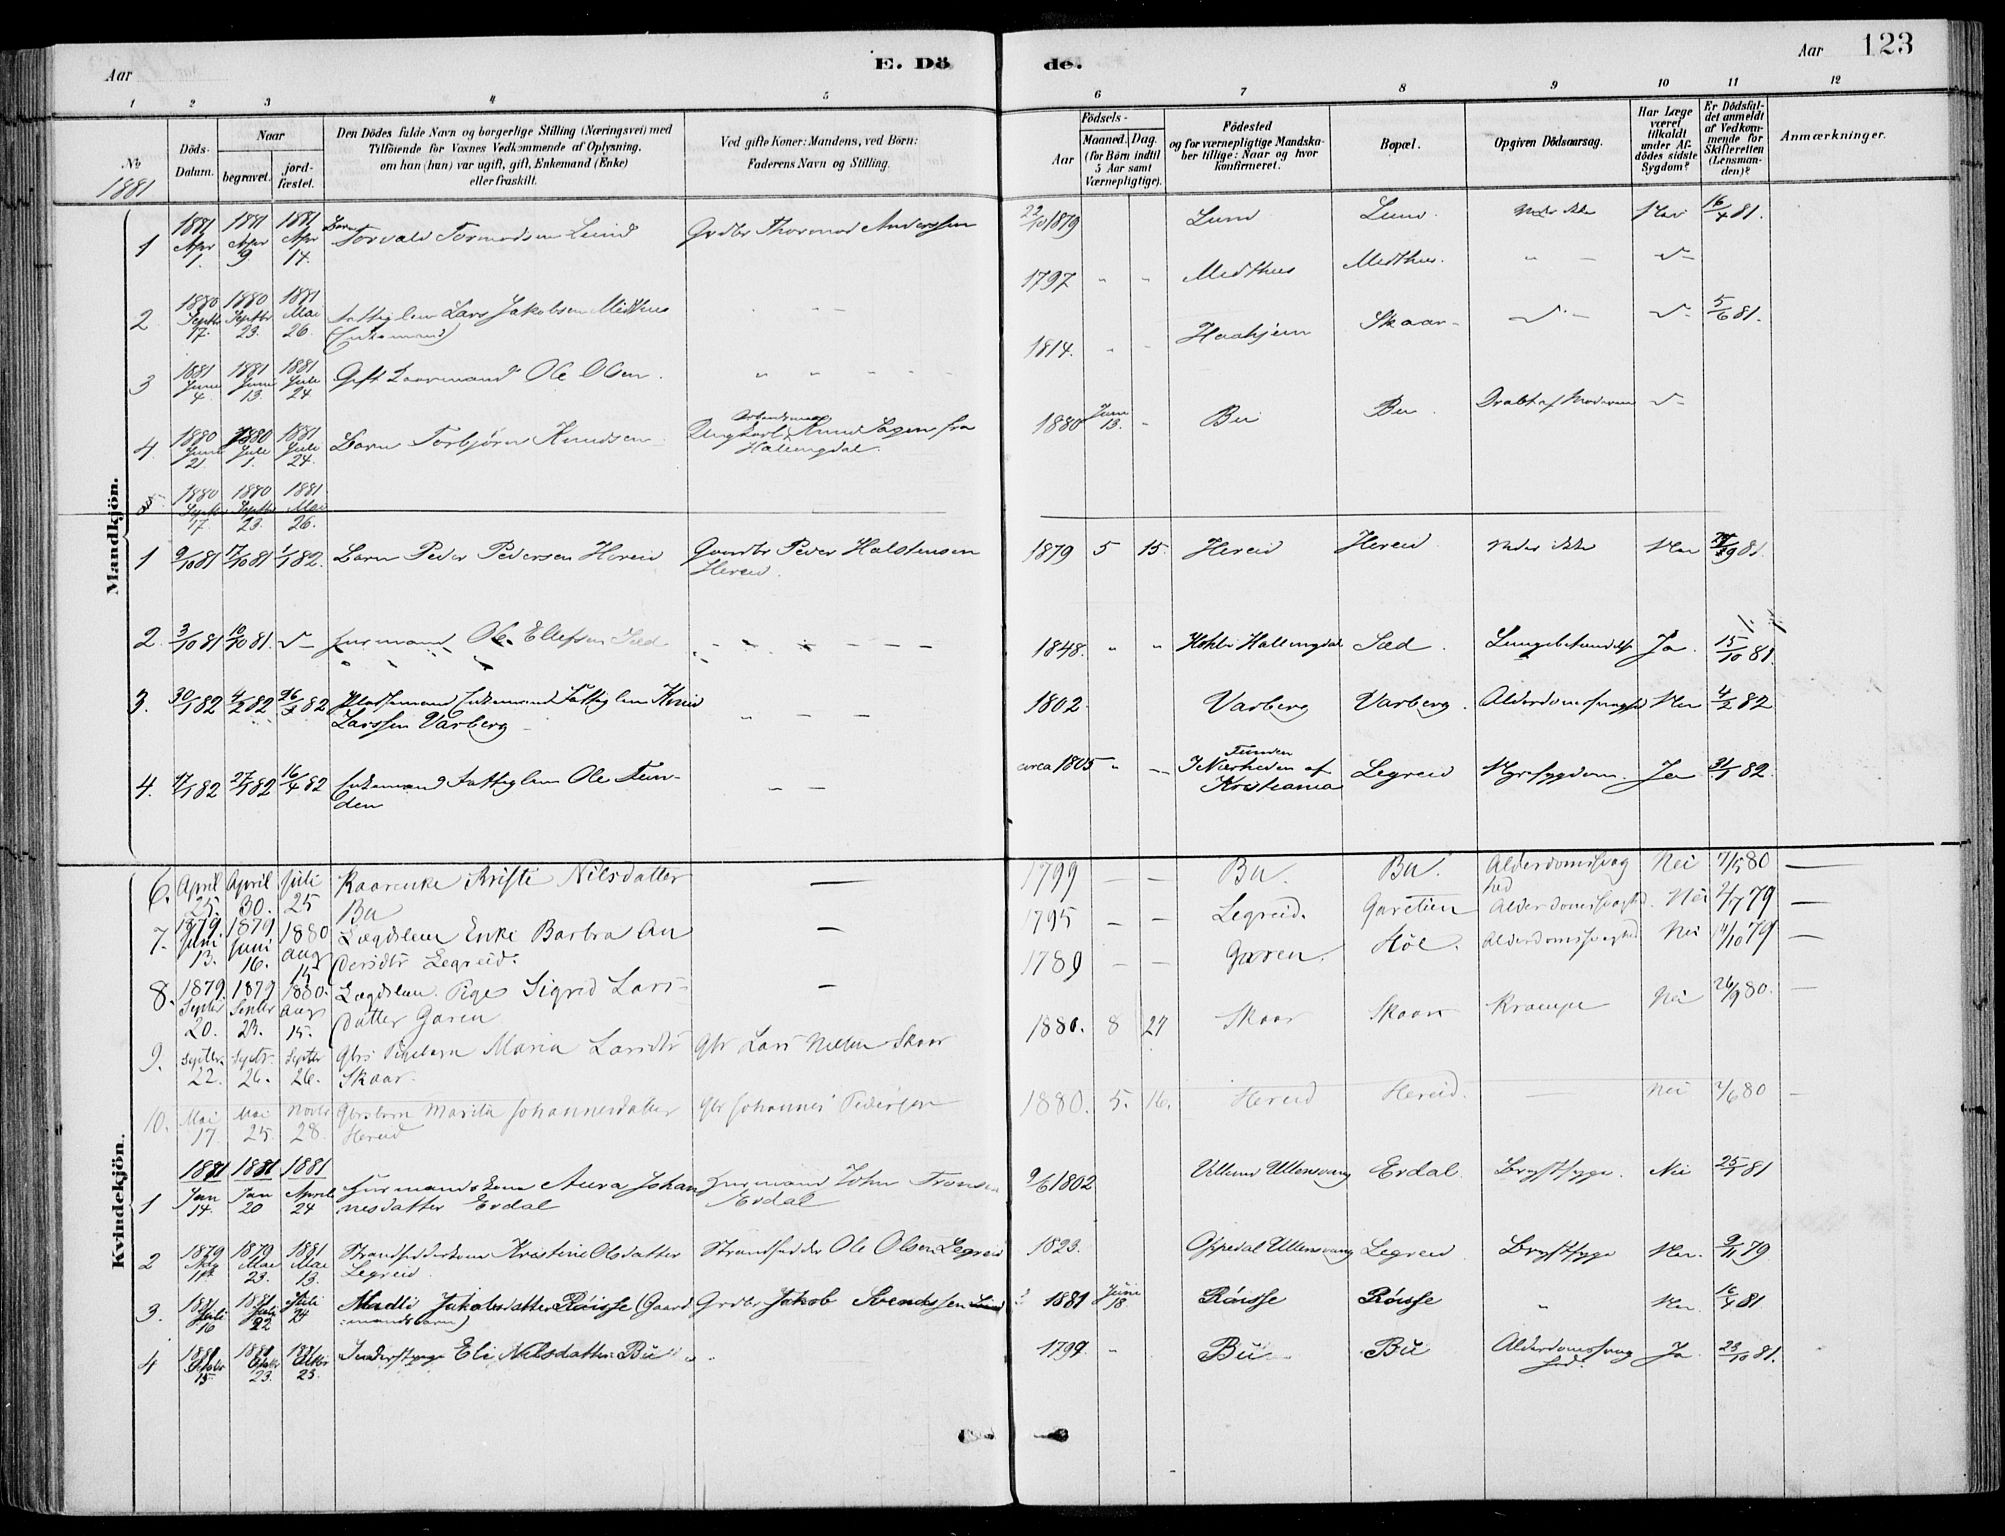 Aar
E. Dö
de.
Aar 123
1 2 3 4 5 6 7 8 9 10 11 12
No
1881
Döds-
Datum.
Naar
begravet.
jord-
fæstet.
Den Dödes fulde Navn og borgerlige Stilling (Næringsvei) med
Tilföiende for Voxnes Vedkommende af Oplysning,
om han (hun) var ugift, gift, Enkemand (Enke)
eller fraskilt.
Ved gifte Koner: Mandens, ved Börn:
Faderens Navn og Stilling.
Födsels-
Aar
Maaned. Dag.
(for Börn indtil
5 Aar samt
Værnepligtige).
Födested
og for værnepligtige Mandska-
ber tillige: Naar og hvor
konfirmeret.
Bopæl.
Opgiven Dödsaarsag.
Har Læge
været
tilkaldt
under Af-
dödes sidste
Sygdom?
Er Dödsfal-
det anmeldt
af Vedkom-
mende for
Skifteretten
(Lensman-
den)?
Anmærkninger.
Mandkjön.
1 1881 Apr 1. 1881 Apr 9. 1881 Apr 14. Barn Torvald Tormodsen Lund Grdbr Thormod Anderssen 22/10 1879 Lund Lund. 16/4 81.
2 1880 Septbr 17. 1880 Septbr 23. 1881 Mai 26. Fattiglem Lars Jakobsen Midthus
(Enkemand) 1797 Medthus Medthus.
3 1881 Juni 4. 1881 Juni 13. 1881 Juli 24 Gift Ole Olsen. 1814. Haahjem Skaar 5/6 81.
4. 1880 Juni 21. 1880 Juli 1. 1881 Juli 24. Barn Torbjørn Knudsen. Ungkarl Knud fra
Hallingdal. 1880 Juni 13. Bu Bu.
1880 Septbr 17. 1880 Septbr 23. 1881 Mai 26.
1 9/10 81 17/10 81 1/1 82. Barn Peder Pedersen Hereid Gaardbr Peder Halstensen
Hereid. 1879 5 15. Hereid Hereid.
2. 3/10 81 10/10 81. Husmand Ole Ellefsen Sæd 1848. Hallingdal Sæd. Lungebetændelse Ja. 15/10 81.
3. 30/1 82 4/2 82 Enkemand Fattiglem Knud
Larssen Varberg 1802 Varberg Varberg. Alderdomssvaghed Nei 4/2 82
4. 17/1 82 27/1 82 16/4 82 Enkemand Fattiglem Ole Tun-
den circa 1805 Tunden
I Nærheden af
Kristiania Legreid Ja 31/1 82.
Kvindekjön.
6. April 25. April 30. Juli 25 Kaarenke Kristi Nilsdatter
Bu 1799 Bu. Bu. Alderdomssvag
hed Nei 7/5 80
7. 1879. Juni 13. 1879 Juni 16. 1880 Aug 15 Lægdslem Enke Barbra An
dersdtr Legreid. 1795 Legreid. Garetien Alderdomssvaghed. Nei 2/7 79
8. 1879. Septbr 20. 1879 Septbr 23. 1880. Aug 15. Lægdslem. Pige Sigrid Lars-
datter Garen 1789 Garen. Høl. Alderdomssvaghed Nei 14/10 79
9. Septbr. 22. Septr. 26. Septbr 26. Gbrs Pigebarn Maria Larsdtr
Skaar. Gbr Lars Nilsen Skaar 1880. 8 27 Skaar Skaar Krampe Nei 26/9 80.
10. Mai 17. Mai 25. Novbr 28. Gbrsbarn Marita Johannesdatter
Hereid Gbr Johannes Pedersen 1880. 5. 16. Hereid Hereid. Nei 2/6 80
1 1881 Jan 14. 1881 Jan 20 1881 April 24 Husmandskone Anna Johan
nesdatter Erdal Husmand John Tronsen
Erdal 9/6 1802 Ullensvang Erdal Brystsyge. Nei 25/1 81
2 1879 1879 Mai 23. 1881 Mai 13. Strandsidderkone Kristine Olsdatter
Legreid. Strandsidder Ole Olsen Legreid 1823. Oppedal Ullensvang Legreid Brystsyge Nei. 79
3. 1881 Juli 16 1881 Juli 22 Juli 24 Madli Jakobsdatter Röisse (Gaard
mandsbarn) Grdbr Jakob Svendssen 1881 Juni 18 Röisse Röisse Nei. 81
4 1881 Octbr 15 1881 Octbr 23. 1881 25. Eli Nilsdatter Bu 1799 Bu Bu Alderdomssvag
hed. Ja 23/10 81.